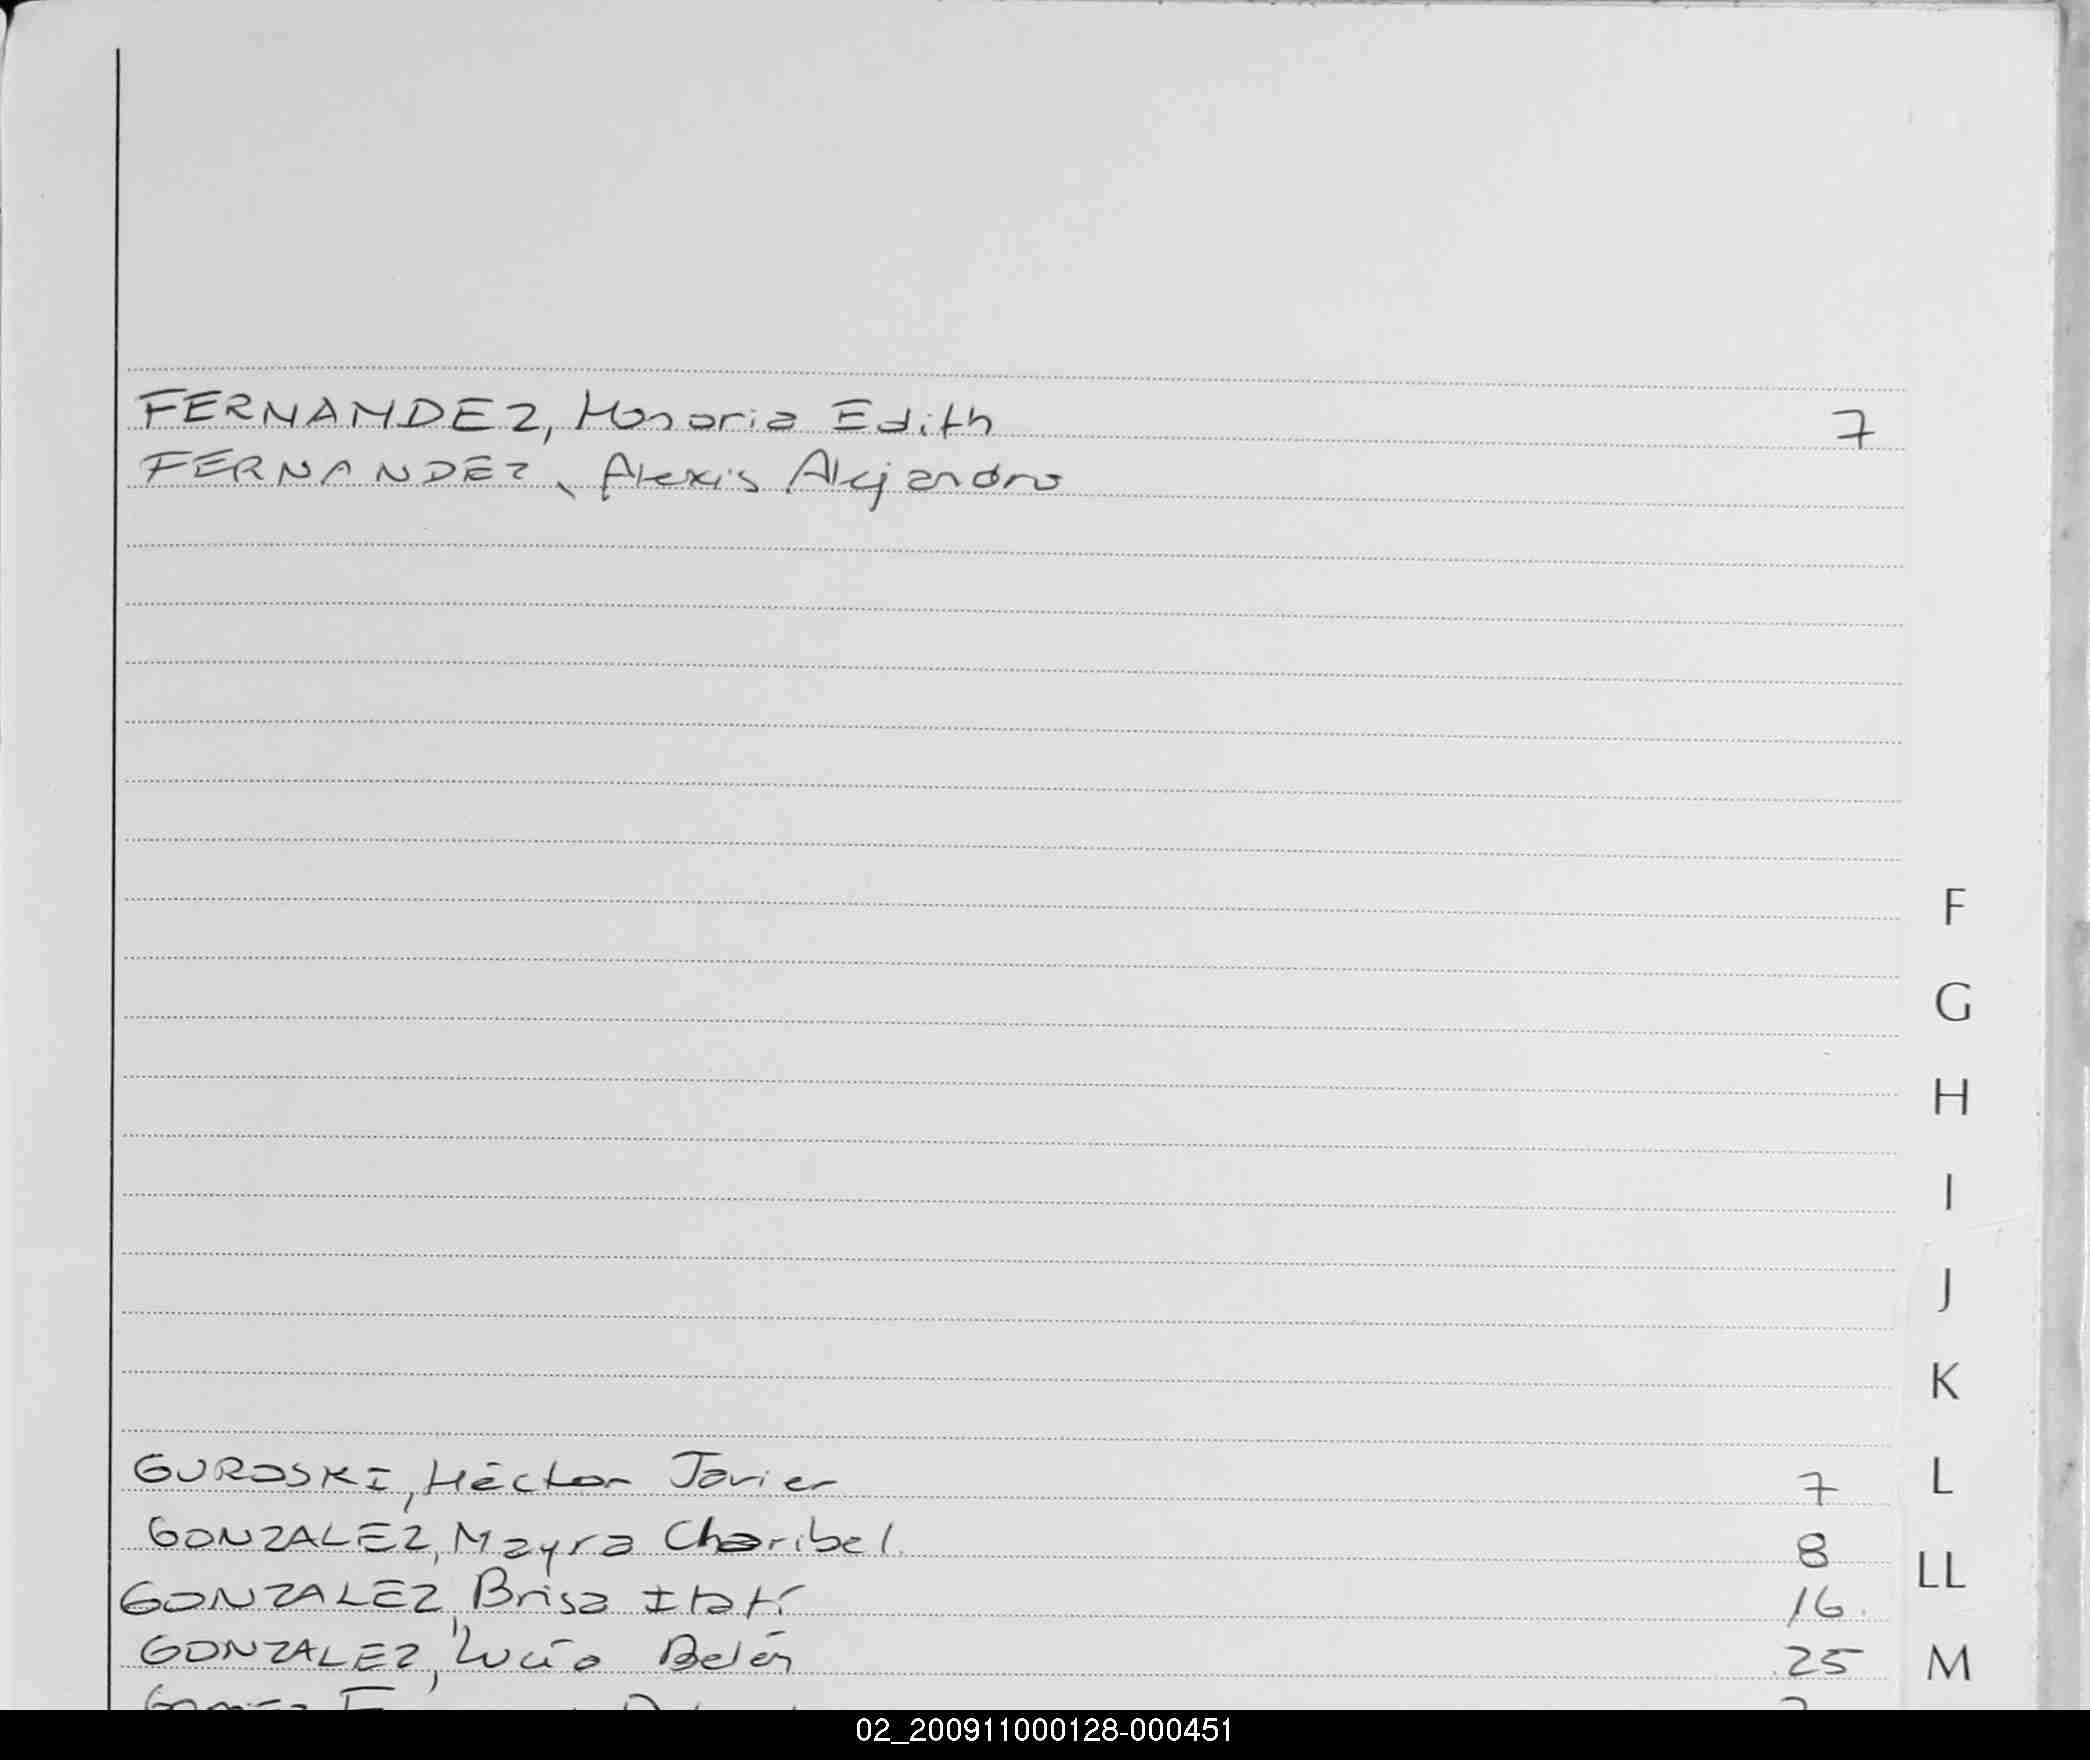 FERNANDEZ, Honoria Edith 7
FERNANDEZ, Alexis Alejandro
F
G
H
I
J
K
GUROSKI, Héctor Javier 7
L
GONZALEZ, Mayra Charibel. 8
LL
GONZALEZ, Brisa Itatí 16.
GONZALEZ, Lucía Belén 25
M
02_200911000128-000451